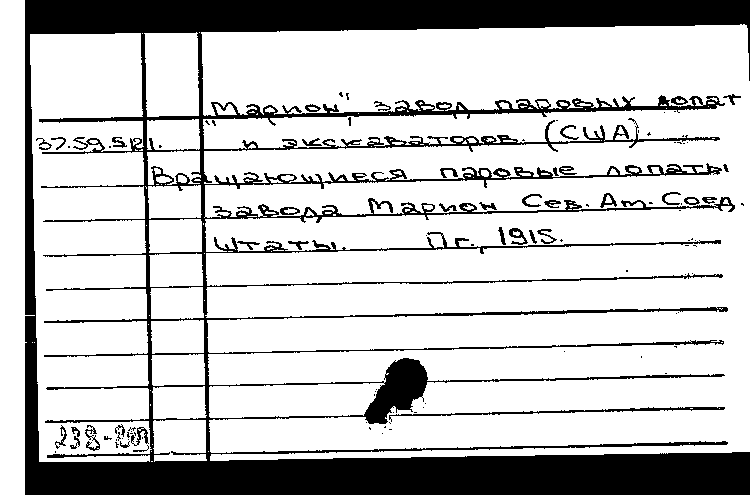 "Марион", завод паровых лопат
37.59.5.21. и экскаваторов. (США).
Вращающиеся паровые лопаты
завода Марион Сев. Ам. Соед.
Штаты. Пг., 1915.